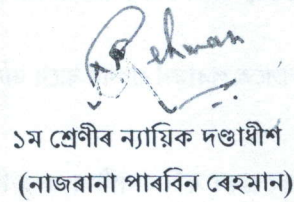 Rehman
১ম শ্ৰেণীৰ ন্যায়িক দণ্ডাধীশ
(নাজৰানা পাৰবিন ৰেহমান)